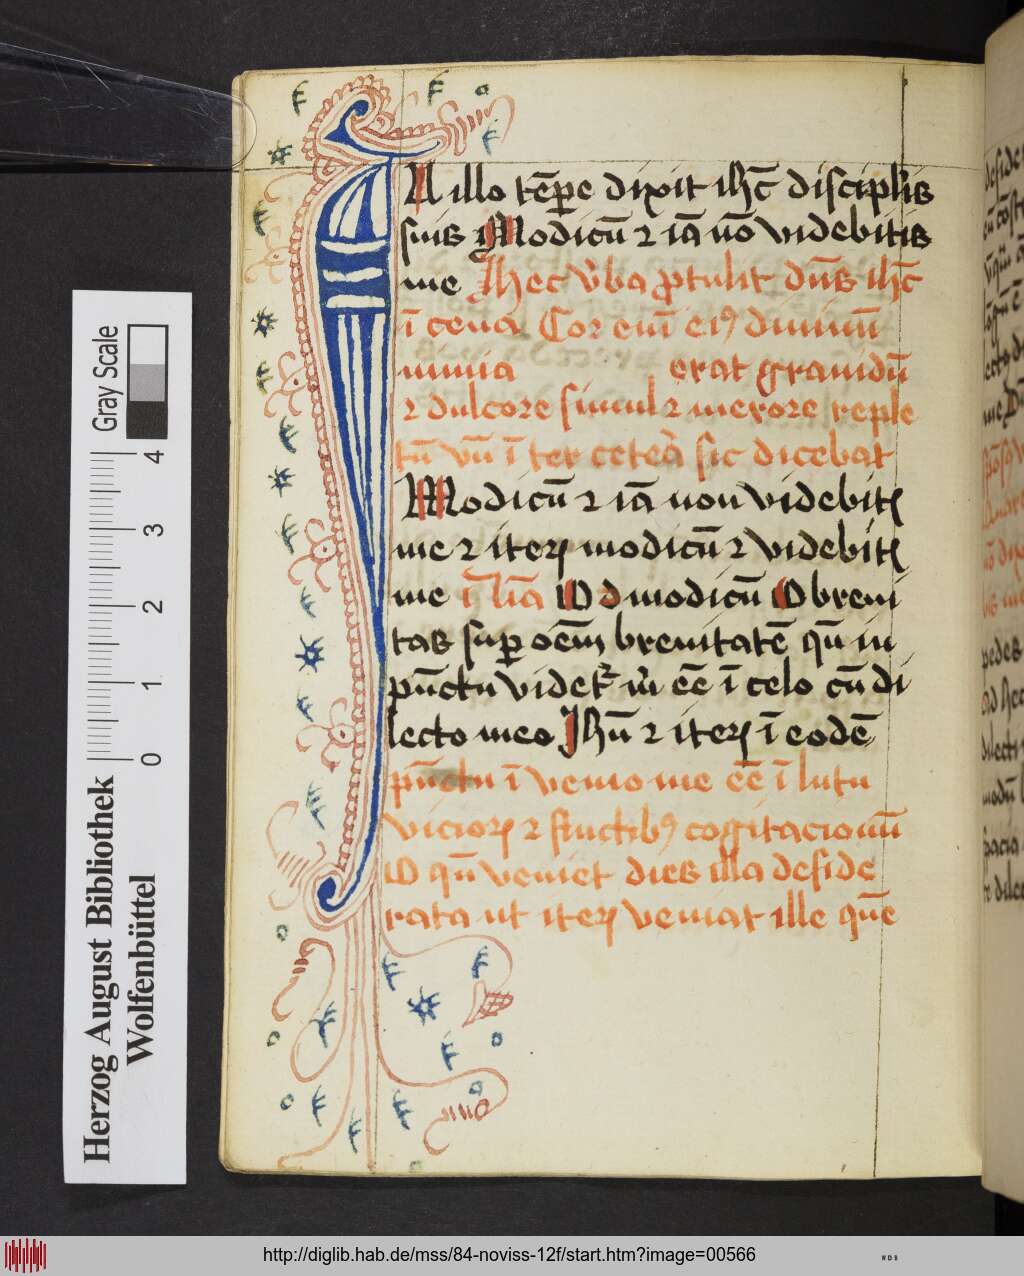 IN illo te̅pe dixit ihc̅ discipl'is
suis Modicu̅ ⁊ ia̅ no̅ videbitis
me Hec v'ba ꝓtulit dn̅s ihc̅
i̅ cena Cor eni̅ eiꝰ diuinu̅
nimia erat grauidu̅
⁊ dulcore simul ⁊ merore reple
tu̅ vn̅ i̅ ter cetea̅ sic dicebat
Modicu̅ ⁊ ia̅ non videbitꝭ
me ⁊ iteꝝ modicu̅ ⁊ videbitꝭ
me i̅ lr̅a O modicu̅ O breui
tas suꝑ oe̅m breuitate̅ qn̅ in
pu̅ctu videt᷑ m̅ ee̅ i̅ celo cu̅ di
lecto meo Jhu̅ ⁊ iteꝝ i̅ eode̅
pu̅ctu i̅venio me ee̅ i̅ lutu
vicioꝝ ⁊ fluctibꝰ cogitacionu̅
O qn̅ veniet dies illa deside
rata ut iteꝝ veniat ille que̅
Gray Scale
4
3
2
1
0
Herzog August Bibliothek
Wolfenbüttel
http://diglib.hab.de/mss/84-noviss-12f/start.htm?image=00566